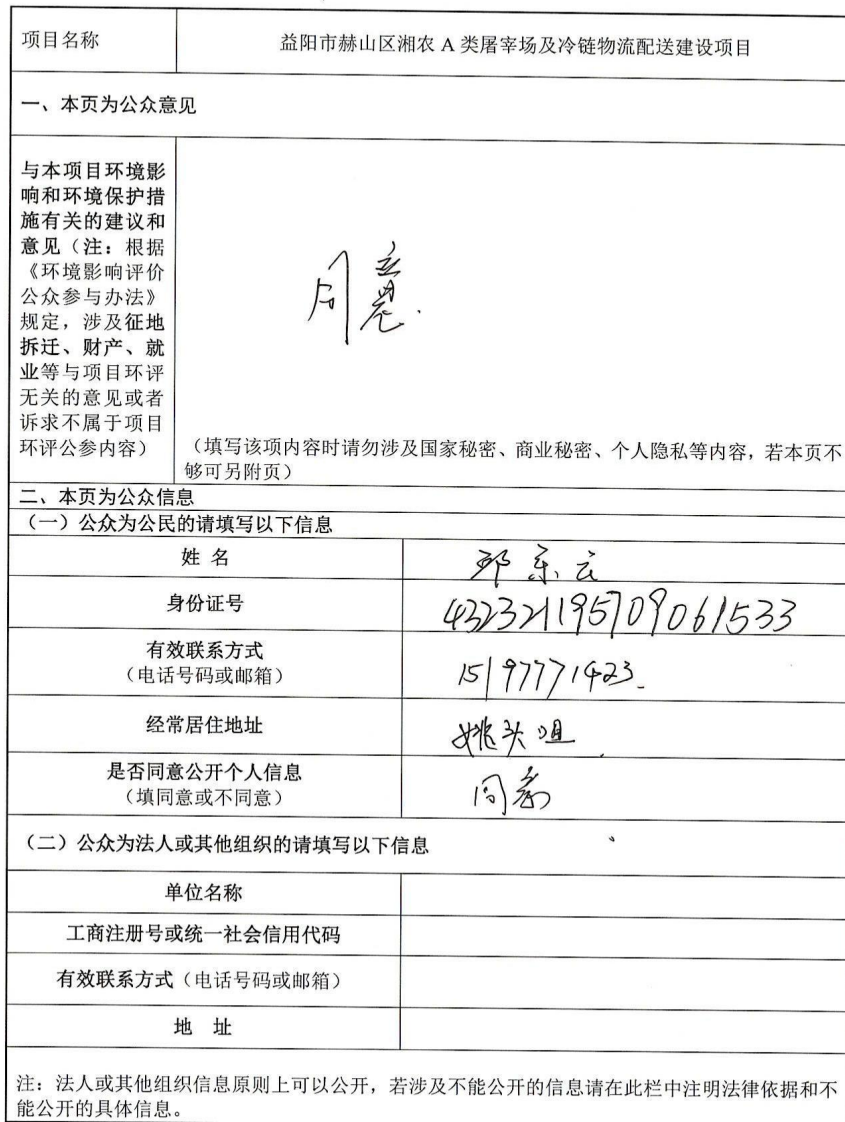 项目名称
益阳市赫山区湘农 A 类屠宰场及冷链物流配送建设项目
一、本页为公众意见
与本项目环境影
响和环境保护措
施有关的建议和
意见（注：根据
《环境影响评价
公众参与办法》
规定，涉及征地
拆迁、财产、就
业等与项目环评
无关的意见或者
诉求不属于项目
环评公参内容）
同意.
（填写该项内容时请勿涉及国家秘密、商业秘密、个人隐私等内容，若本页不
够可另附页）
二、本页为公众信息
（一）公众为公民的请填写以下信息
姓 名
身份证号
432321195709061533
有效联系方式
（电话号码或邮箱）
15197771423
经常居住地址
姚头咀
是否同意公开个人信息
（填同意或不同意）
同意
（二）公众为法人或其他组织的请填写以下信息
单位名称
工商注册号或统一社会信用代码
有效联系方式（电话号码或邮箱）
地 址
注：法人或其他组织信息原则上可以公开，若涉及不能公开的信息请在此栏中注明法律依据和不
能公开的具体信息。